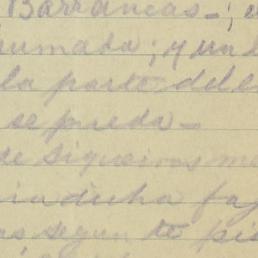 Barrancas-; e
humada; y un
la parte del
se pueda-
de siqueiros me
dicha fa
as segun te pi